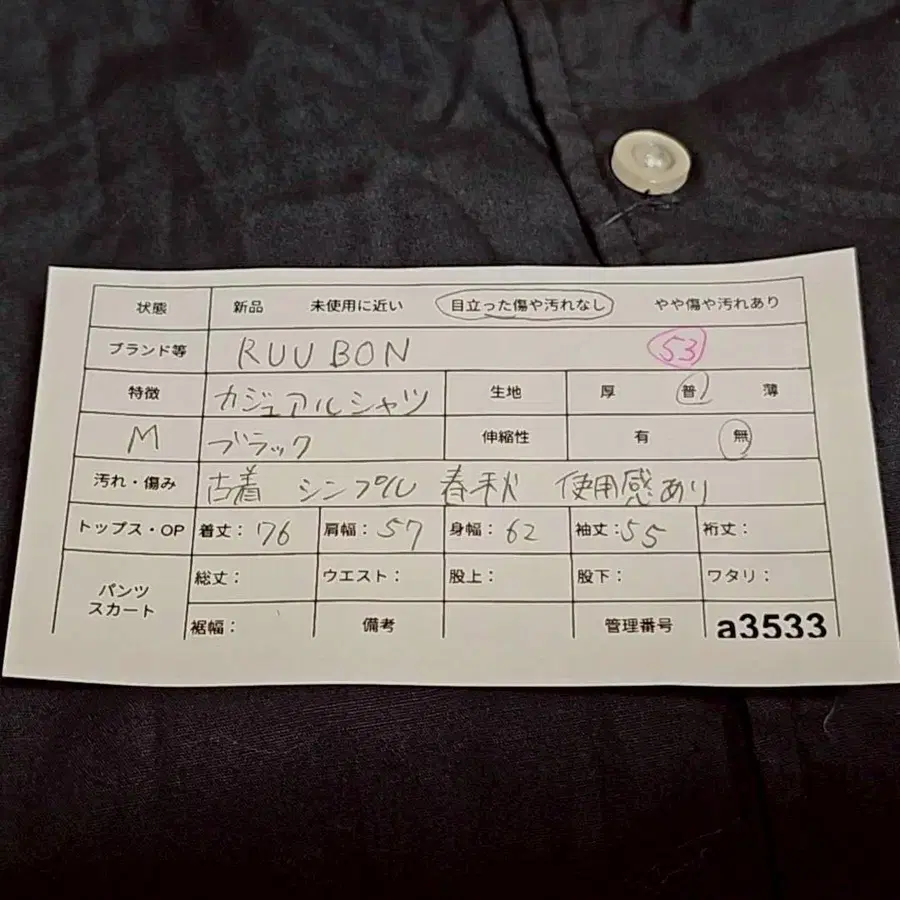 状態 新品 未使用に近い 目立った傷や汚れなし やや傷や汚れあり
ブランド等 RUUBON 53
特徴 カジュアルシャツ 生地 厚 普 薄
M ブラック 伸縮性 有 無
汚れ・傷み 古着 シンプル 春秋 使用感あり
トップス・OP 着丈:76 肩幅:57 身幅:62 袖丈:55 裄丈:
パンツ スカート 総丈: ウエスト: 股上: 股下: ワタリ:
裾幅: 備考 管理番号 a3533